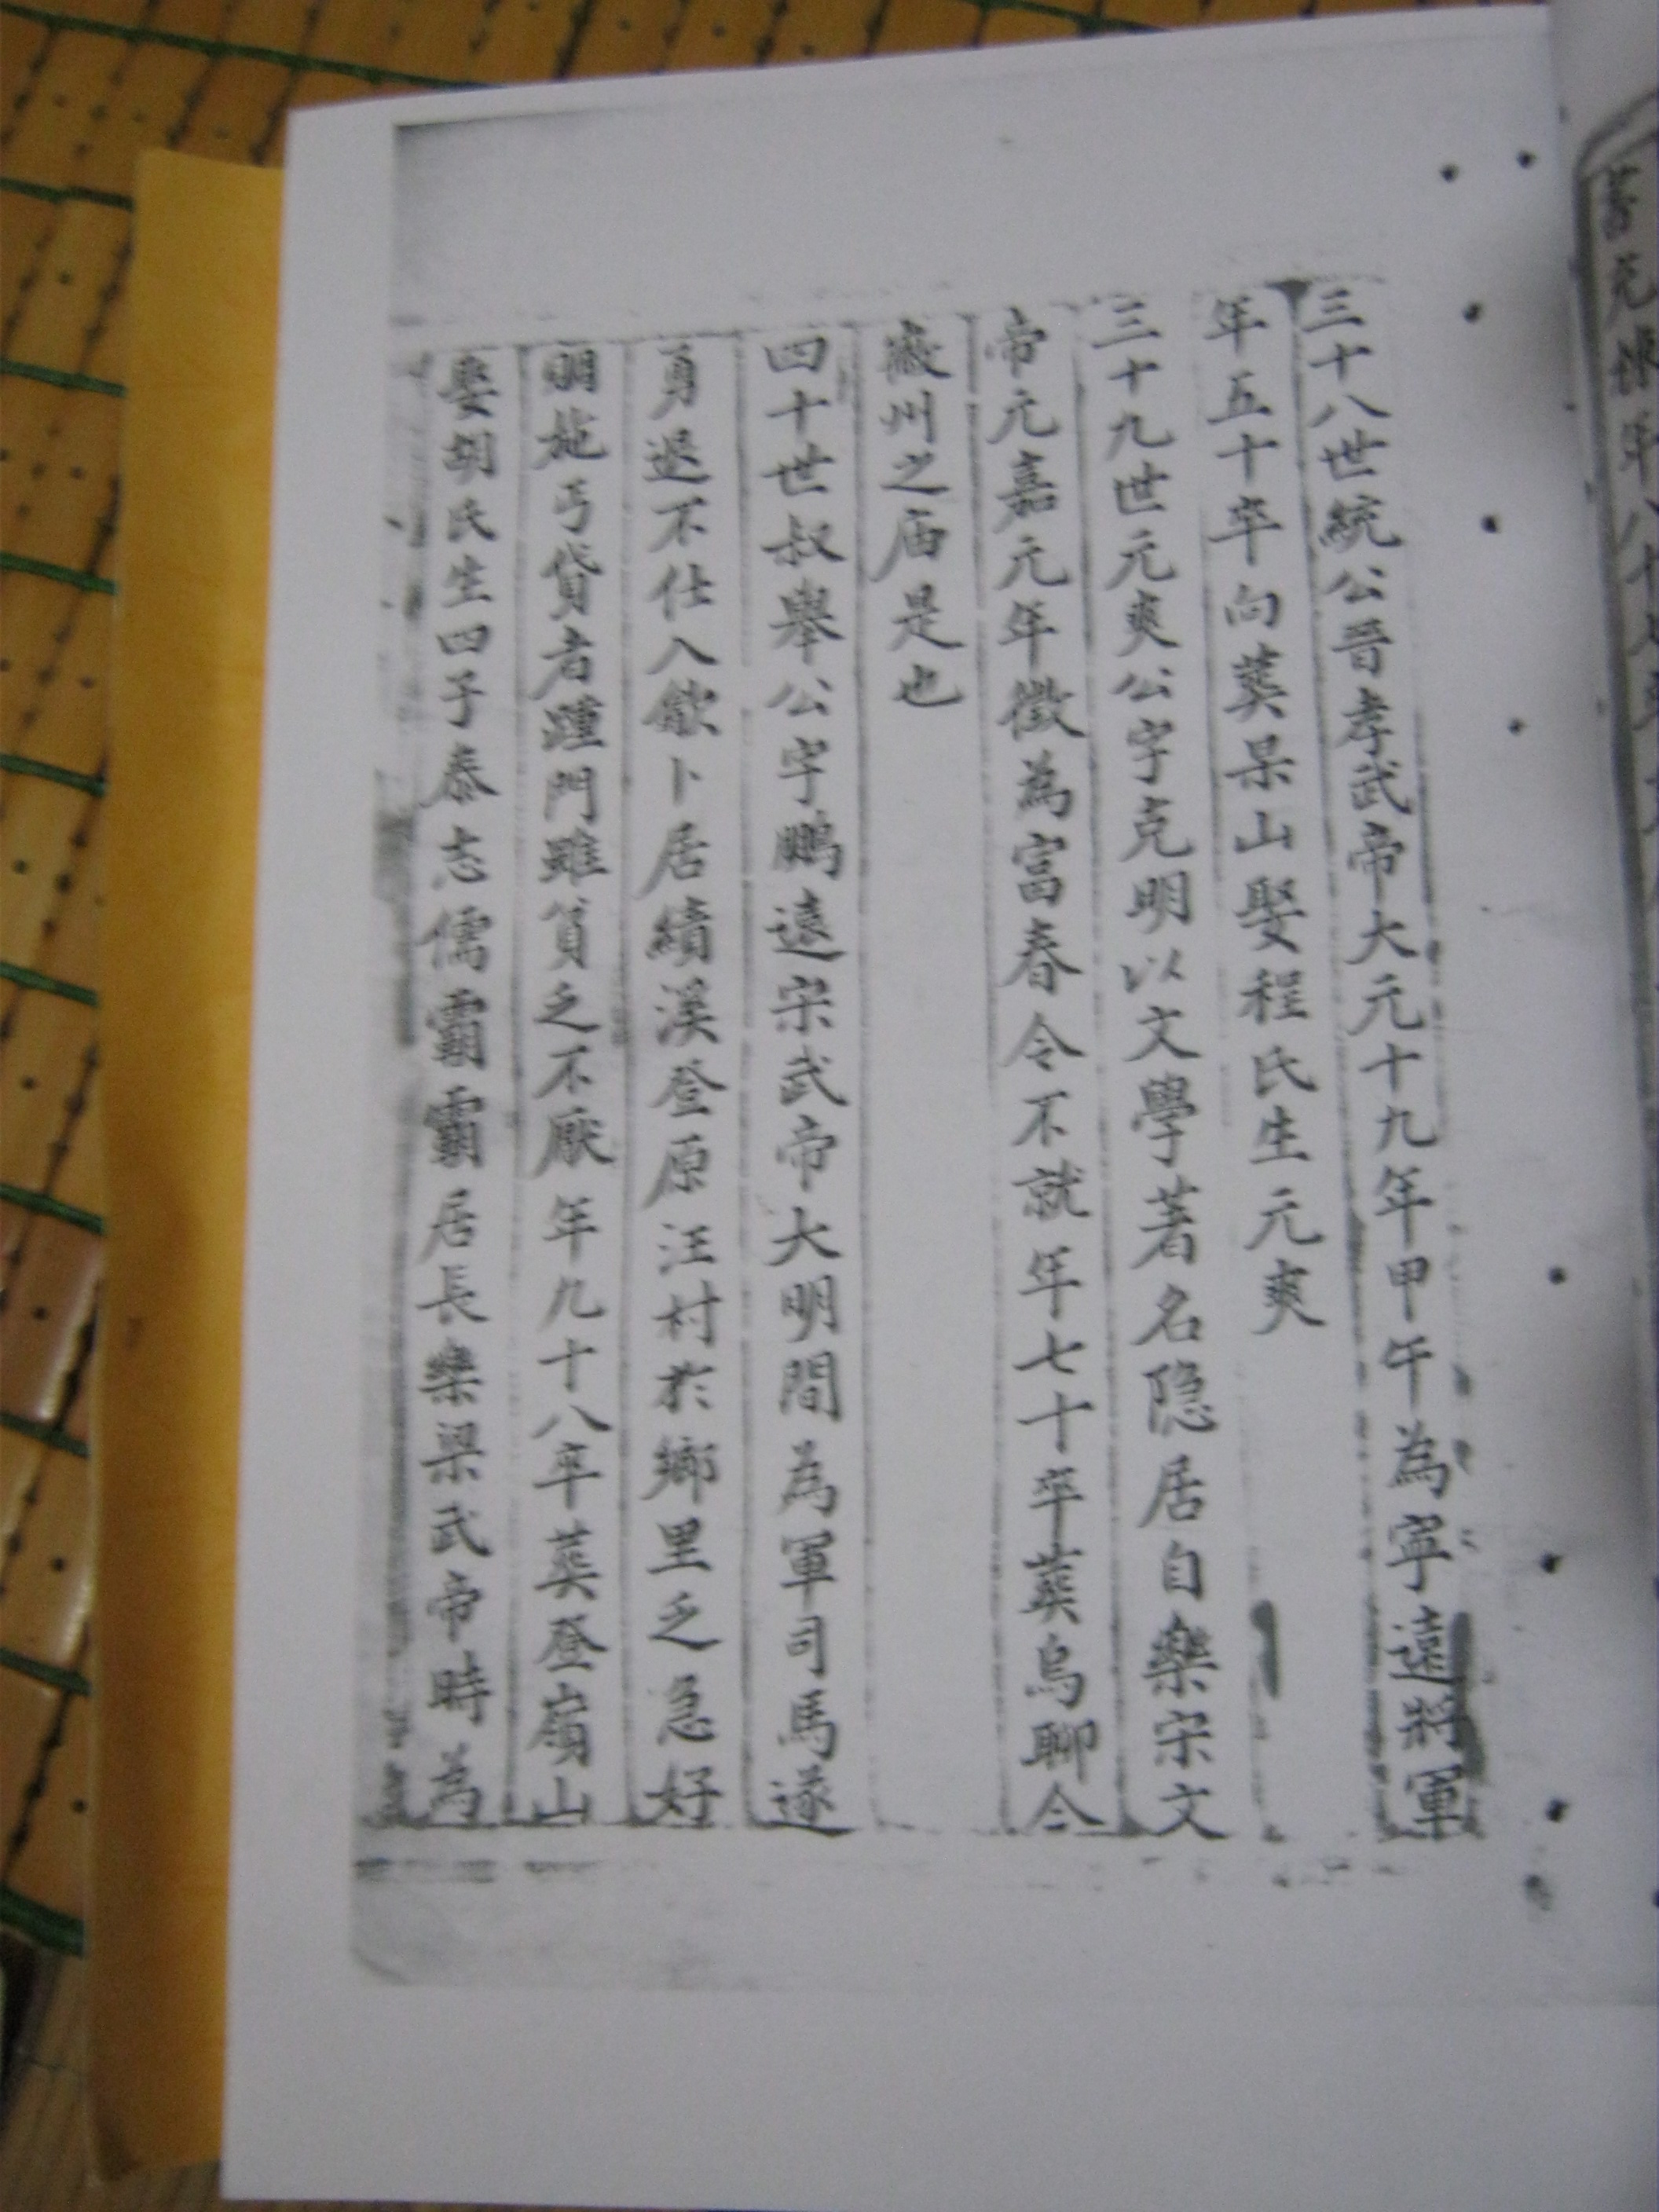 三十八世統公晉孝武帝大元十九年甲午為寧遠將軍
年五十卒向葬杲山娶程氏生元爽
三十九世元爽公字克明以文學著名隐居自樂宋文
帝元嘉元年徵為富春令不就年七十卒葬烏聊今
徽州之庙是也
四十世叔舉公字鵬遠宋武帝大明間為軍司馬遂
勇退不仕入歙卜居績溪登原汪村扵鄉里乏急好
賙施丐貸者踵門雖貧乏不厭年九十八卒葬登嶺山
娶胡氏生四子泰志儒霸霸居長樂梁武帝時為